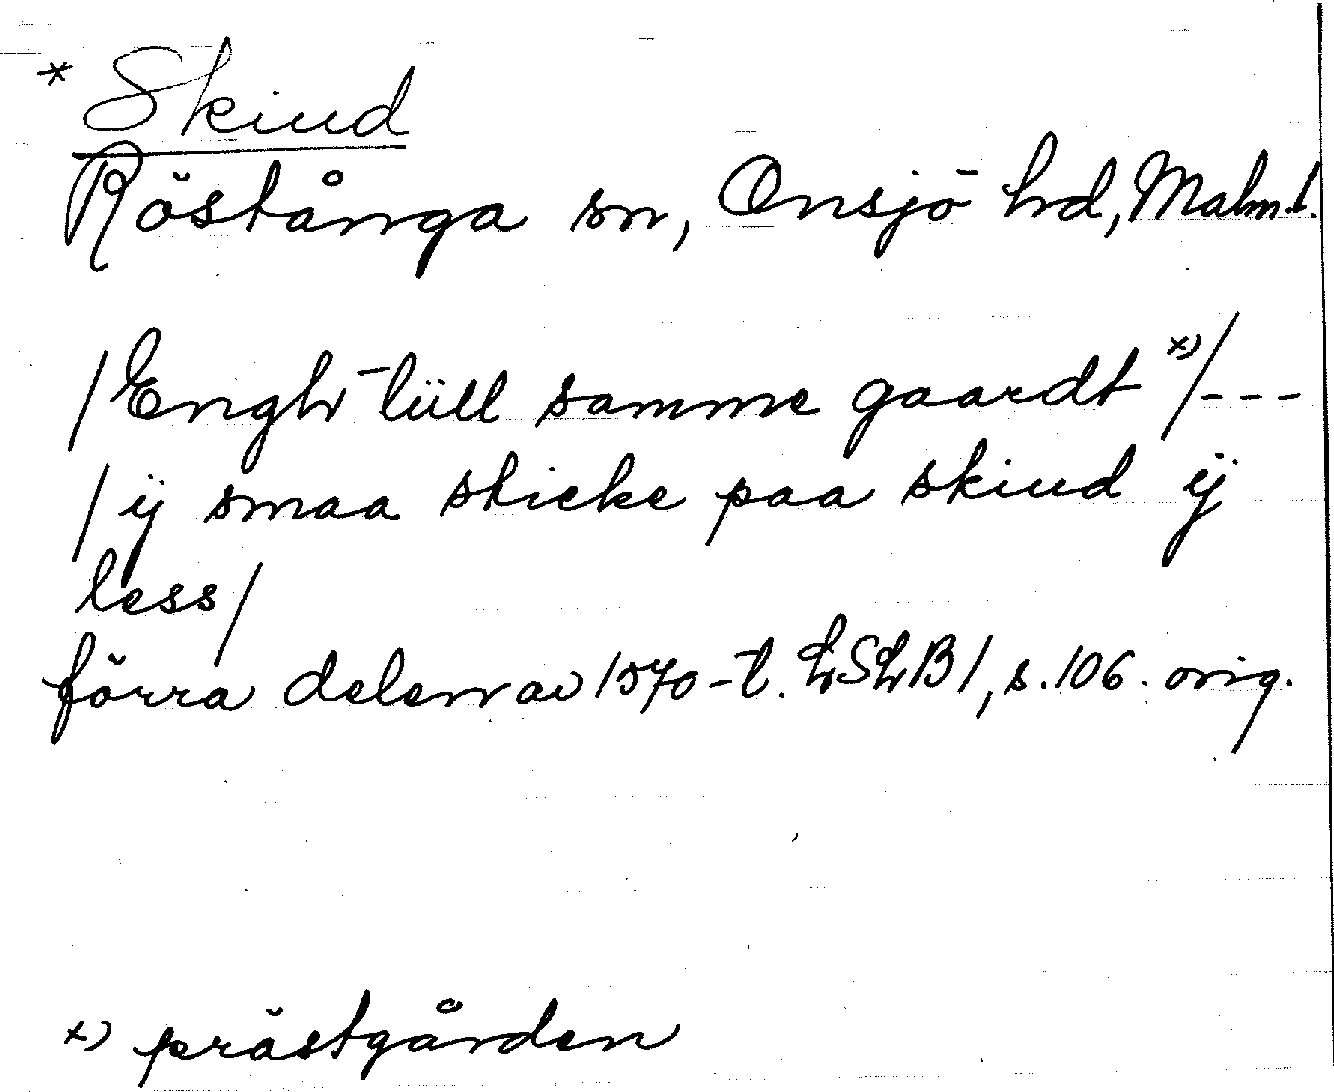 * Skiud
Röstånga sn, Onsjö hd, Malm.l.
/Engh tüll samme gaardt x)/---
/ij smaa sticke paa skiud ij
less/
förra delen av 1570-t. LSLB1, s.106. orig.
x) prästgården